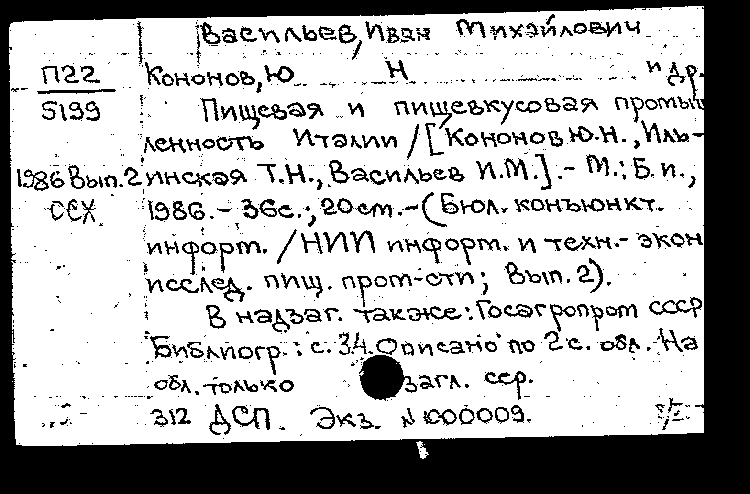 Васильев, Иван Михайлович
П22 Кононов, Ю Н и др.
5199 Пищевая и пищевкусовая промыш
ленность Италии / [Кононов Ю.Н., Иль-
1986 Вып.2 инская Т.Н., Васильев И.М.]. - М.: Б.и.,
ССХ 1986. - 36с.; 20см. - (Бюл. конъюнкт.
информ. / НИИ информ. и техн.- экон
исслед. пищ. пром-сти; Вып. 2).
В надзаг. также: Госагропром СССР
Библиогр.: с. 34. Описано по 2 с. обл. На
обл. только загл. сер.
312 ДСП. Экз. N 000009.